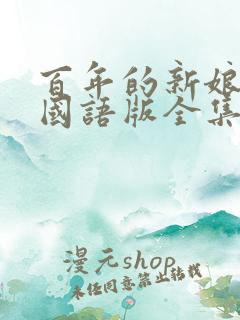 百年的新娘
國語版全集
漫元shop
未任同意禁止转载